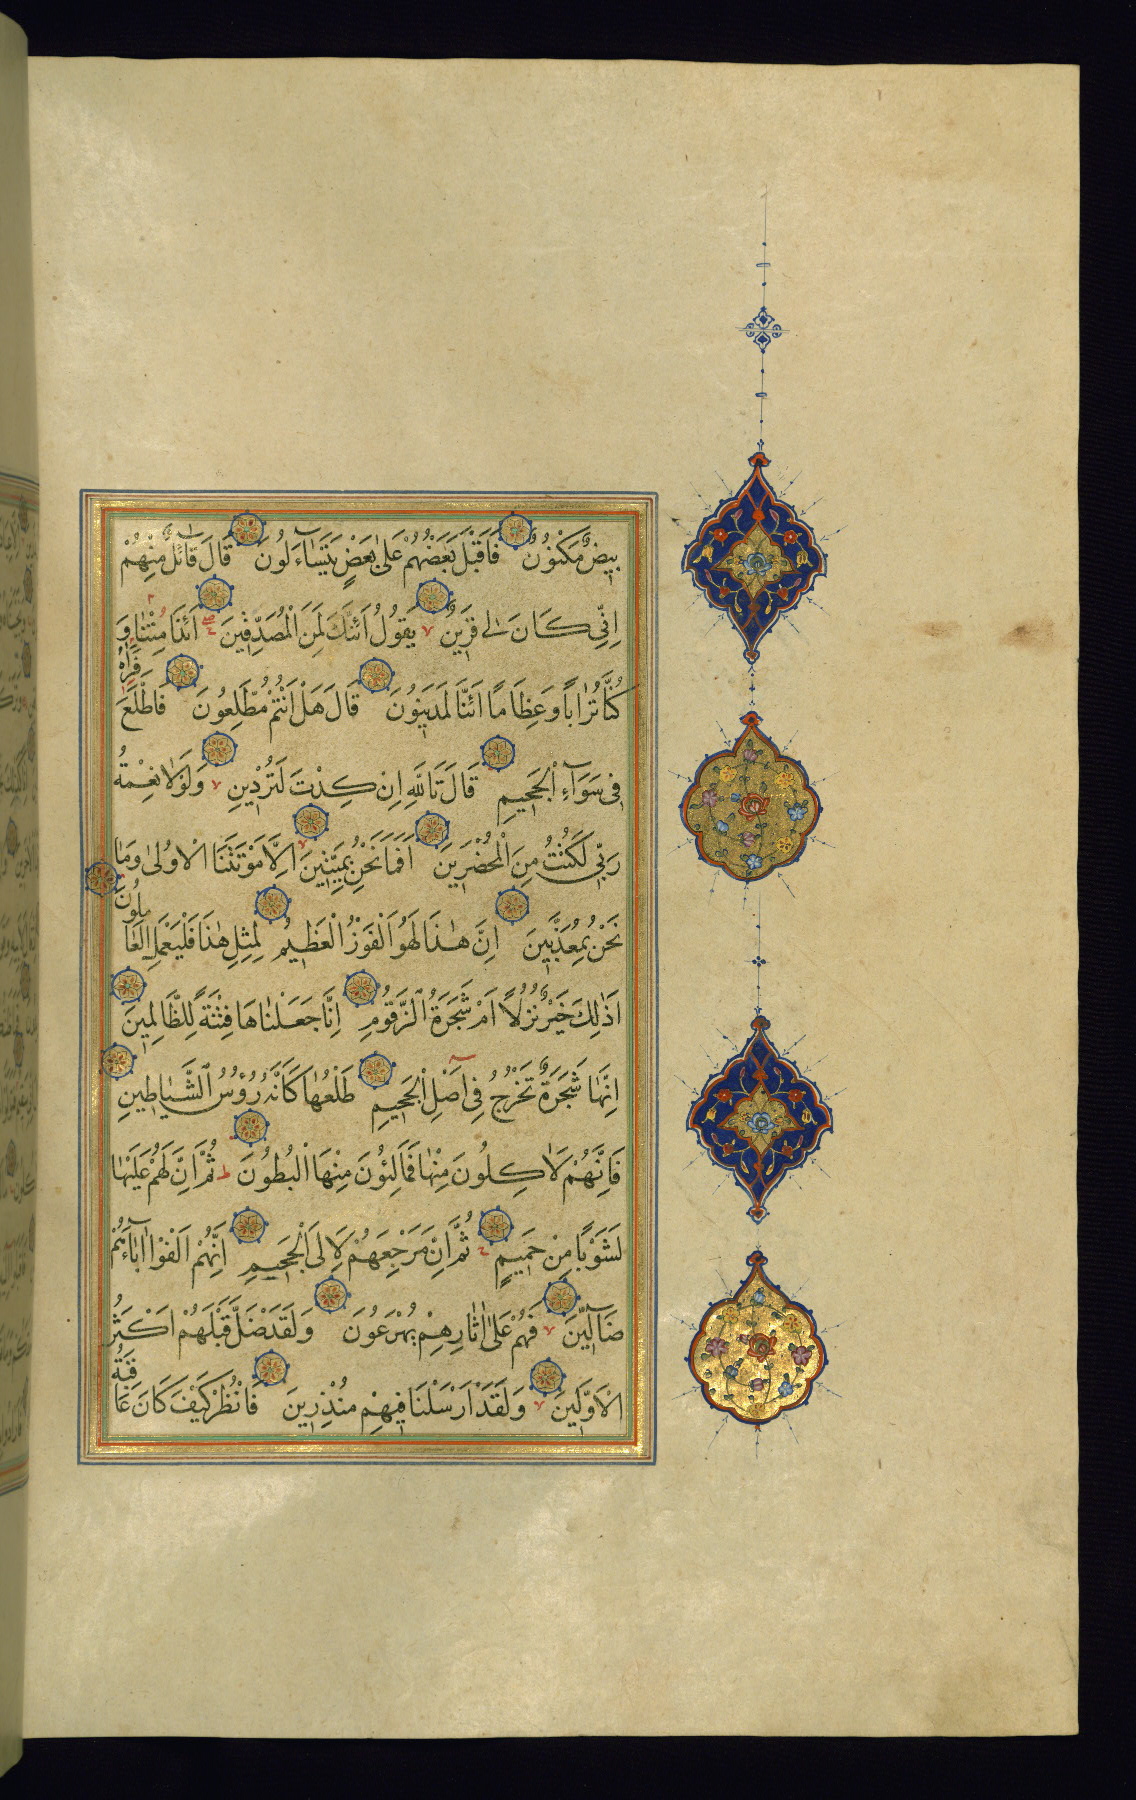 بِيضٌ مَكْنُونٌ فَاَقْبَلَ بَعْضُهُمْ عَلٰى بَعْضٍ يَتَسَآءَلُونَ قَالَ قَآئِلٌ مِنْهُمْ
اِنِّى كَانَ لِى قَرِينٌ يَقُولُ اَئِنَّكَ لَمِنَ الْمُصَدِّقِينَ اَئِذَا مِتْنَا وَ
كُنَّا تُرَابًا وَعِظَامًا اَئِنَّا لَمَدِينُونَ قَالَ هَلْ اَنْتُمْ مُطَّلِعُونَ فَاطَّلَعَ فَرَاٰهُ
فِى سَوَآءِ الْجَحِيمِ قَالَ تَاللّٰهِ اِنْ كِدْتَ لَتُرْدِينِ وَلَوْلَا نِعْمَةُ
رَبِّى لَكُنْتُ مِنَ الْمُحْضَرِينَ اَفَمَا نَحْنُ بِمَيِّتِينَ اِلَّا مَوْتَتَنَا الْاُولٰى وَمَا
نَحْنُ بِمُعَذَّبِينَ اِنَّ هٰذَا لَهُوَ الْفَوْزُ الْعَظِيمُ لِمِثْلِ هٰذَا فَلْيَعْمَلِ الْعَامِلُونَ
اَذٰلِكَ خَيْرٌ نُزُلًا اَمْ شَجَرَةُ الزَّقُّومِ اِنَّا جَعَلْنَاهَا فِتْنَةً لِلظَّالِمِينَ
اِنَّهَا شَجَرَةٌ تَخْرُجُ فِى اَصْلِ الْجَحِيمِ طَلْعُهَا كَاَنَّهُ رُؤُسُ الشَّيَاطِينِ
فَاِنَّهُمْ لَاٰكِلُونَ مِنْهَا فَمَالِئُونَ مِنْهَا الْبُطُونَ ط ثُمَّ اِنَّ لَهُمْ عَلَيْهَا
لَشَوْبًا مِنْ حَمِيمٍ ثُمَّ اِنَّ مَرْجِعَهُمْ لَاِلَى الْجَحِيمِ اِنَّهُمْ اَلْفَوْا اٰبَآءَهُمْ
ضَآلِّينَ فَهُمْ عَلٰى اٰثَارِهِمْ يُهْرَعُونَ وَلَقَدْ ضَلَّ قَبْلَهُمْ اَكْثَرُ
الْاَوَّلِينَ وَلَقَدْ اَرْسَلْنَا فِيهِمْ مُنْذِرِينَ فَانْظُرْ كَيْفَ كَانَ عَاقِبَةُ